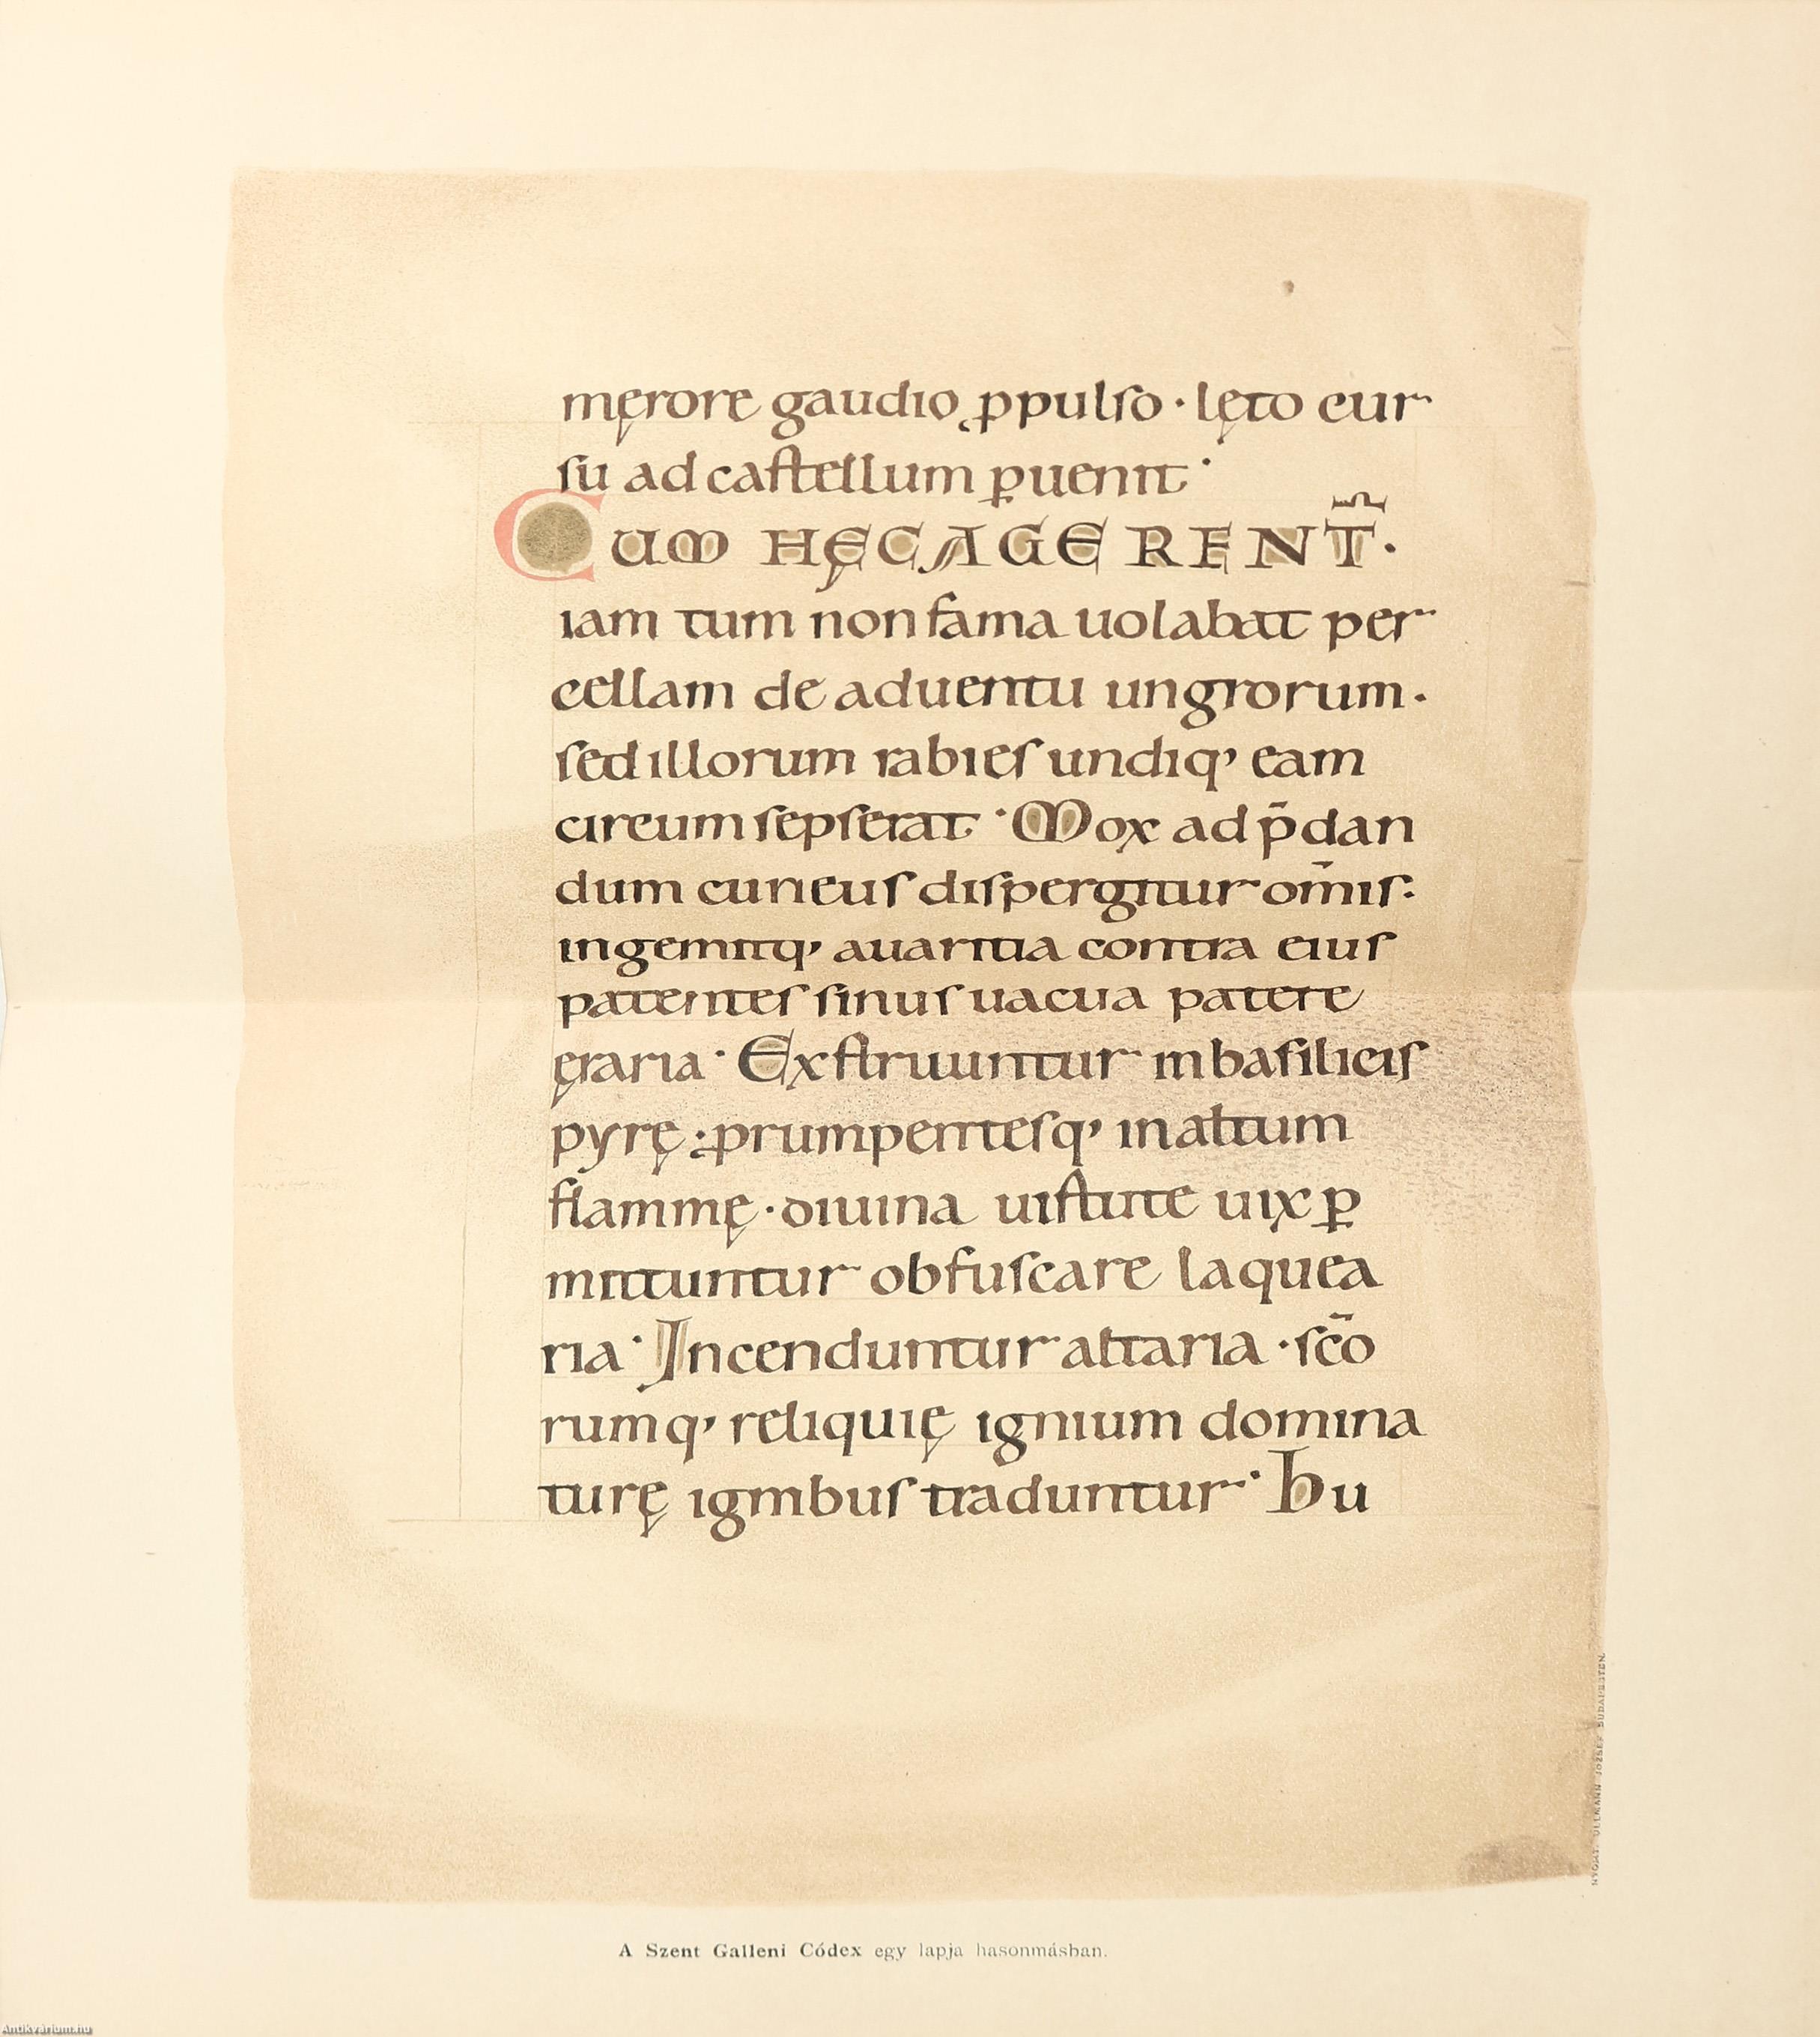 męrore gaudio ꝓpulso · lęto cur
su ad castellum ꝑuenit ·
CUM HĘC AGERENT̃.
iam tum non fama uolabat per
cellam de aduentu ungrorum.
sed illorum rabies undiq, eam
circumsepserat · Mox ad p̄dan
dum cuneus dispergitur om̄is:
ingemitq, auaritia contra eius
patentes sinus uacua patere
ęraria · Exstruuntur in basilicis
pyrę ; ꝓrumpentesq, in altum
flammę · diuina uirtute uix ꝑ
mittuntur obfuscare laquea
ria · Incenduntur altaria · sc̄o
rumq, reliquię ignium domina
turę ignibus traduntur · hu
NYOMT. ULLMANN JÓZSEF BUDAPESTEN.
A Szent Galleni Códex egy lapja hasonmásban.
Antikvárium.hu